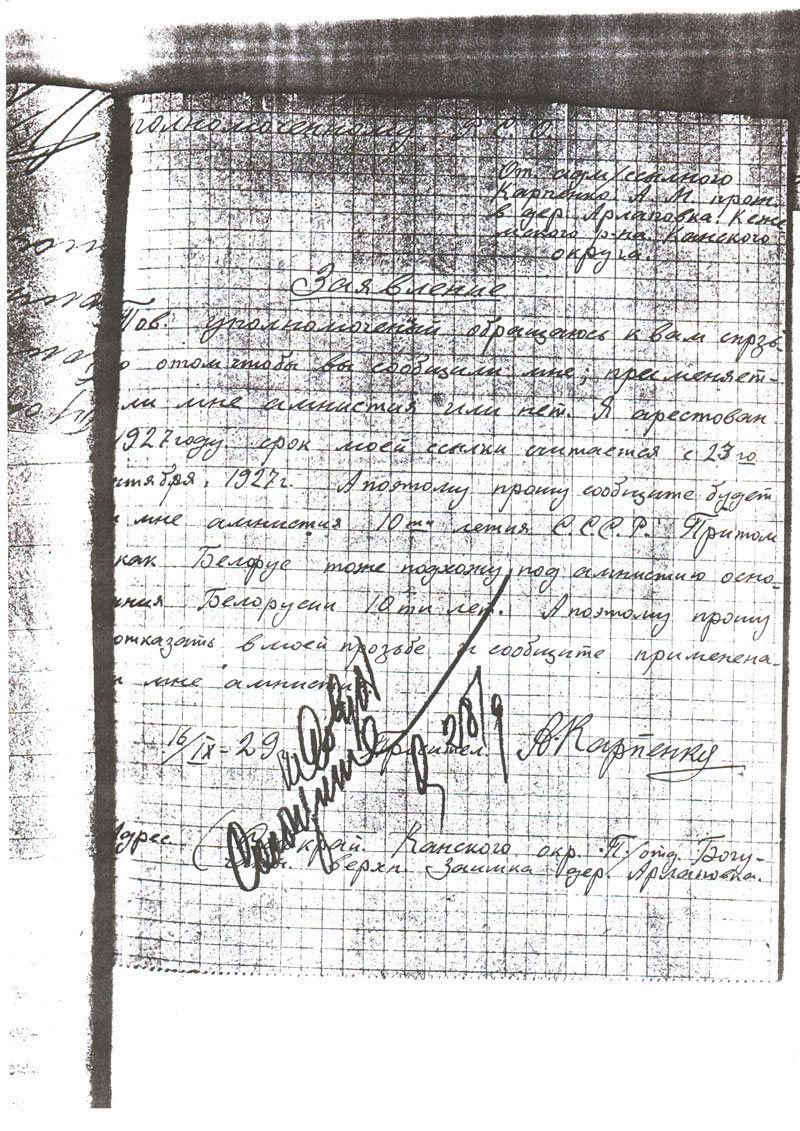 уполномоченному
От адм/ссыльного
Карпенко А. М. прож.
в дер. Арлаповка. Кеже
мского р-на Канского
округа.
Заявление
Тов. уполномоченый обращаюсь к вам спрзь
о отом чтобы вы сообщили мне; применяет-
ли мне амнистия или нет. Я арестован
1927 году срок моей ссылки считается с 23 го
нтября. 1927 г. А поэтому прошу сообщите будет
мне амнистия 10 ти летия С.С.С.Р. Притом
как Белорус тоже подхожу под амнистию осно-
ния Белорусии 10 ти лет. А поэтому прошу
отказать в моей прозьбе и сообщите применена-
и мне амнистия
16/IX-29 А. Карпенко
28/9
Адрес край. Канского окр. П/отд. Богу-
верхн. Заимка дер. Арлаповка.